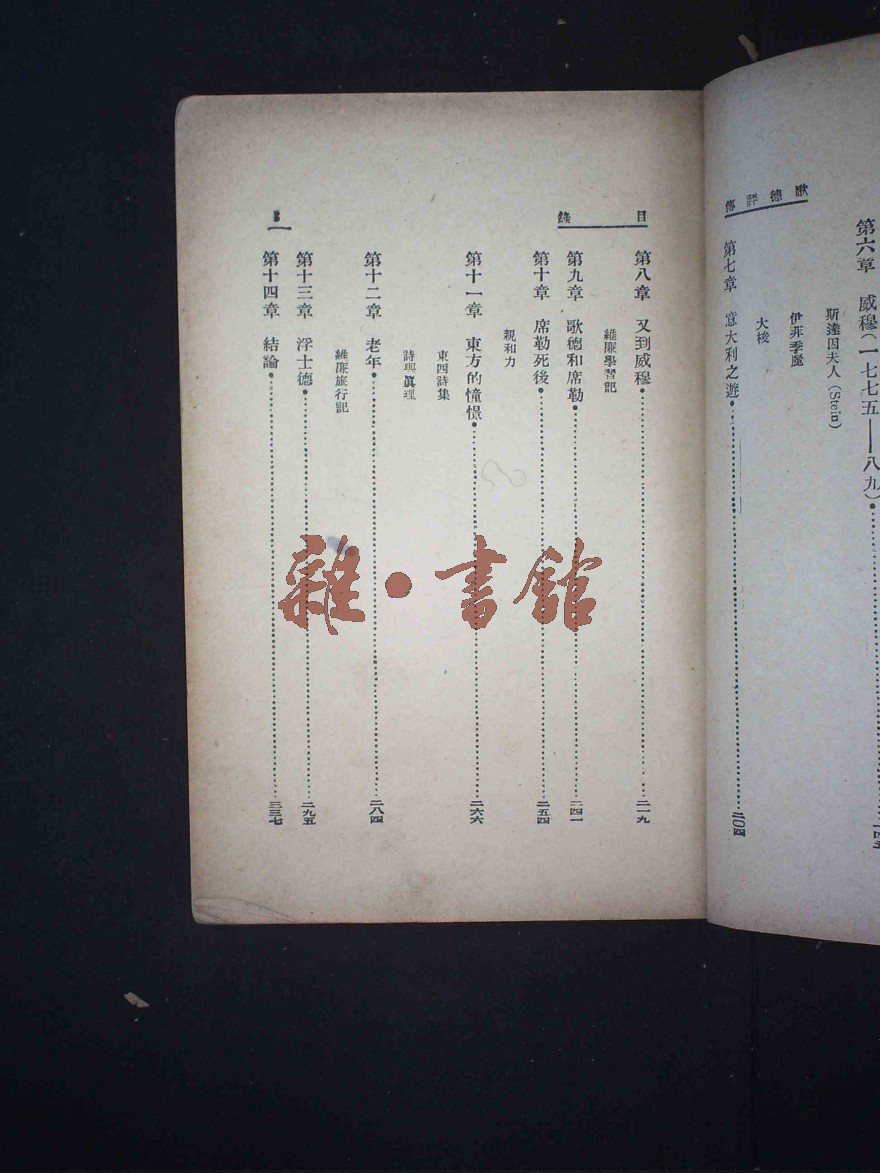 歌德評傳
第六章　威穆（一七七五——八九）
斯達因夫人（Stein）
伊非季魔
大梭
第七章　意大利之遊 二〇四
目錄
第八章　又到威穆 二一九
維廉學習記
第九章　歌德和席勒 二四一
第十章　席勒死後 二五四
親和力
第十一章　東方的憧憬 二六六
東西詩集
詩與眞理
第十二章　老年 二八四
維廉旅行記
第十三章　浮士德 二九五
第十四章　結論 三三七
雜·書館